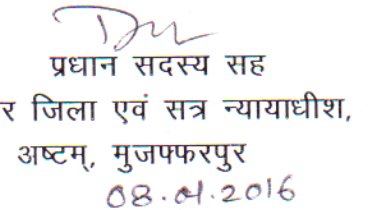 प्रधान सदस्य सह
र जिला एवं सत्र न्यायाधीश,
अष्टम्, मुजफ्फरपुर
08.01.2016